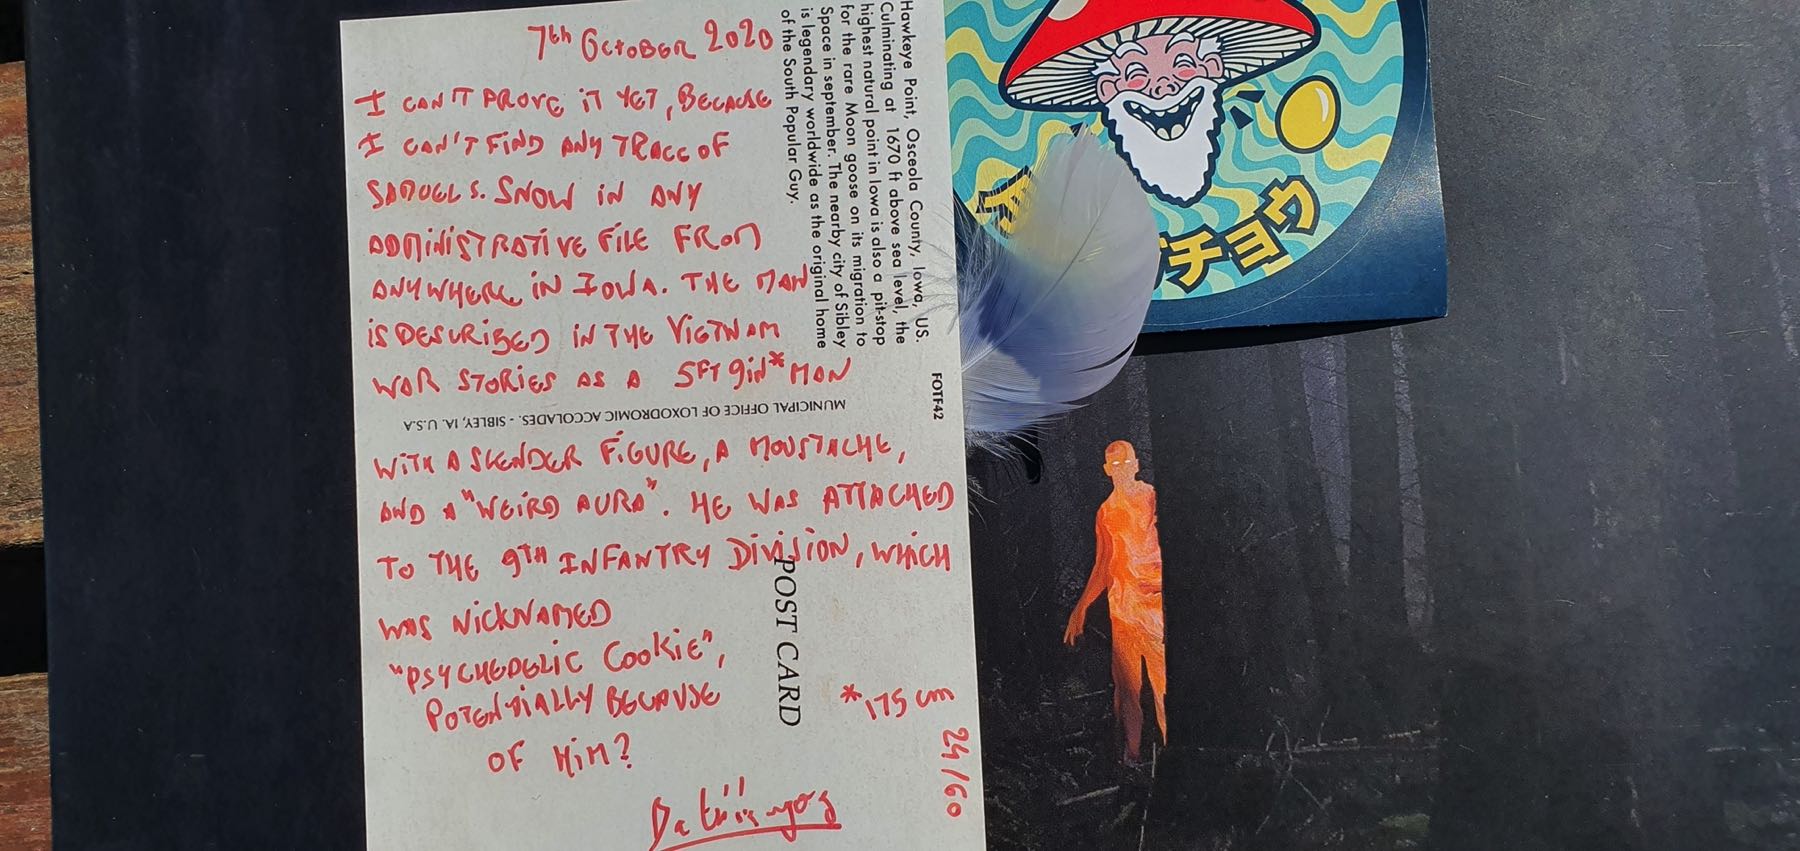 7th October 2020
I CAN'T PROVE IT YET, BECAUSE
I CAN'T FIND ANY TRACE OF
SAMUEL S. SNOW IN ANY
ADMINISTRATIVE FILE FROM
ANYWHERE IN IOWA. THE MAN
IS DESCRIBED IN THE VIETNAM
WAR STORIES AS A 5FT 9in* MAN
WITH A SLENDER FIGURE, A MOUSTACHE,
AND A "WEIRD AURA". HE WAS ATTACHED
TO THE 9TH INFANTRY DIVISION, WHICH
WAS NICKNAMED
"PSYCHEDELIC COOKIE",
POTENTIALLY BECAUSE
OF HIM?
*175 cm
24/60
Hawkeye Point, Osceola County, Iowa, US.
Culminating at 1670 ft above sea level, the
highest natural point in Iowa is also a pit-stop
for the rare Moon goose on its migration to
Space in september. The nearby city of Sibley
is legendary worldwide as the original home
of the South Popular Guy.
FOTF42
MUNICIPAL OFFICE OF LOXODROMIC ACCOLADES. - SIBLEY, IA. U.S.A
POST CARD
チョウ